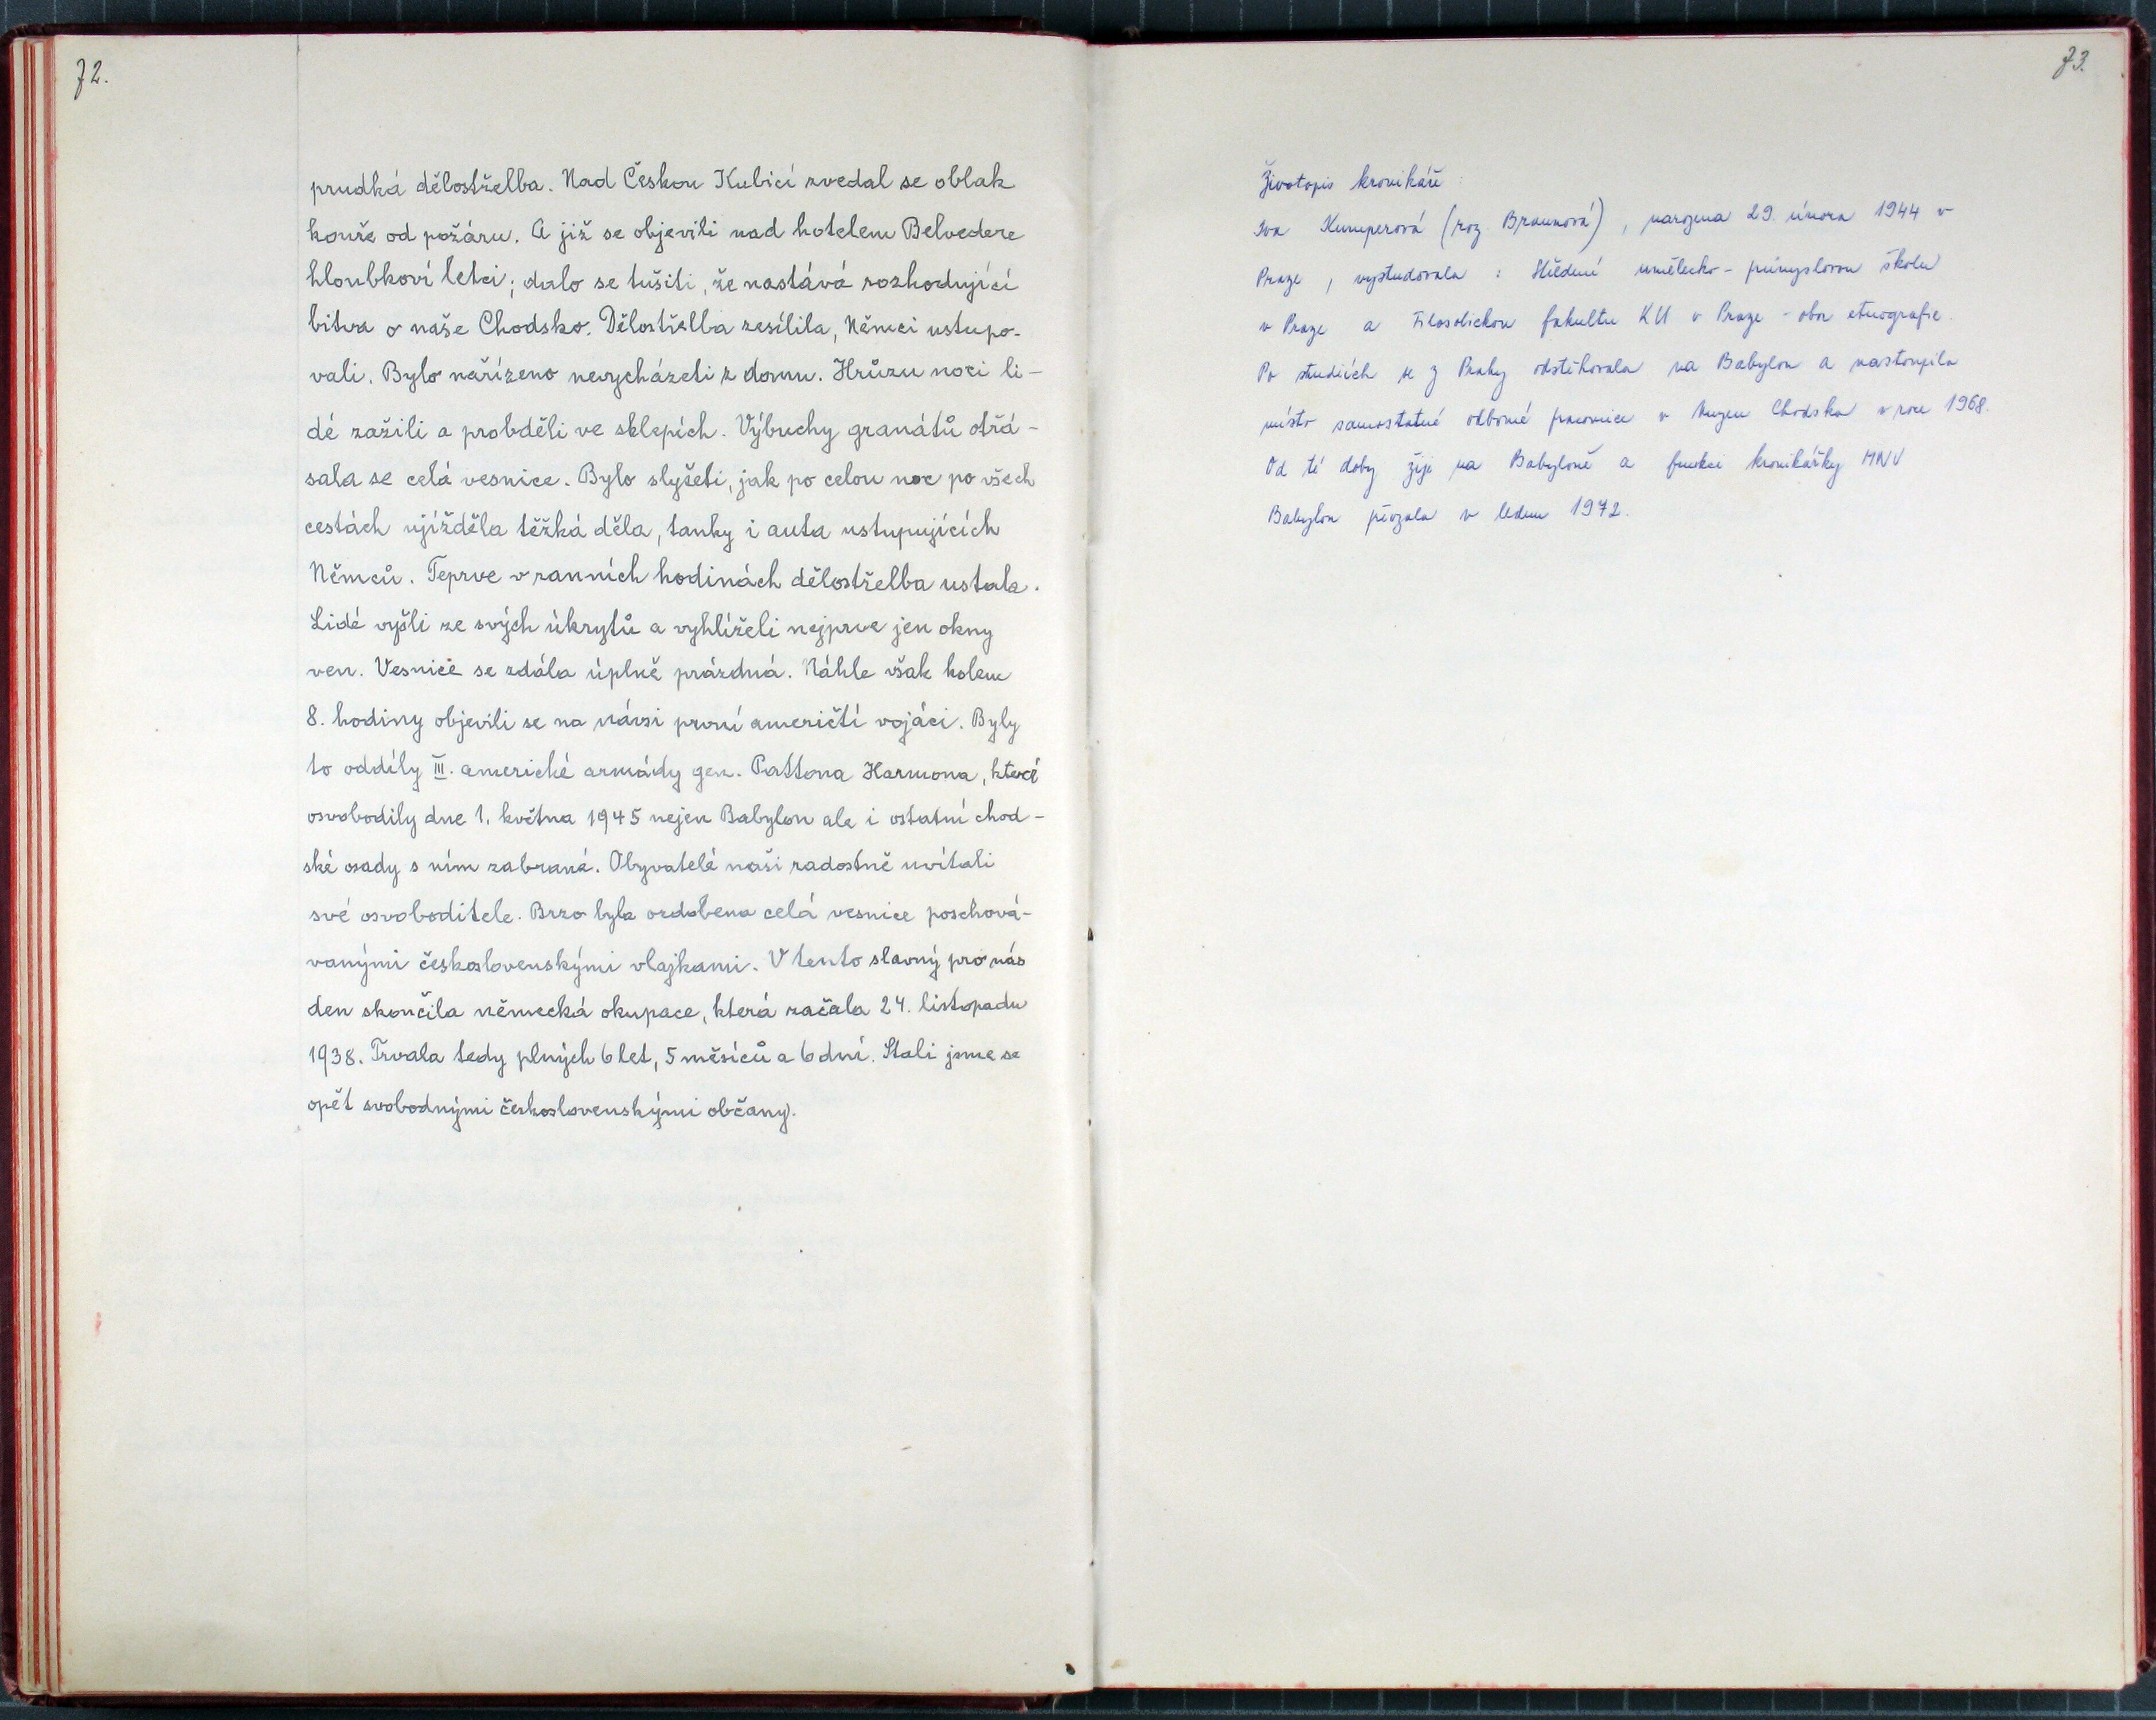 72.
prudká dělostřelba. Nad Českou Kubicí zvedal se oblak
kouře od požáru. A již se objevili nad hotelem Belvedere
hloubkoví letci; dalo se tušiti, že nastává rozhodující
bitva o naše Chodsko. Dělostřelba zesílila, Němci ustupo-
vali. Bylo nařízeno nevycházeti z domu. Hrůzu noci li-
dé zažili a probděli ve sklepích. Výbuchy granátů otřá-
sala se celá vesnice. Bylo slyšeti, jak po celou noc po všech
cestách ujížděla těžká děla, tanky i auta ustupujících
Němců. Teprve v ranních hodinách dělostřelba ustala.
Lidé vyšli ze svých úkrytů a vyhlíželi nejprve jen okny
ven. Vesnice se zdála úplně prázdná. Náhle však kolem
8. hodiny objevili se na návsi první američtí vojáci. Byly
to oddíly III. americké armády gen. Pattona Harmona, které
osvobodily dne 1. května 1945 nejen Babylon ale i ostatní chod-
ské osady s ním zabrané. Obyvatelé naši radostně uvítali
své osvoboditele. Brzo byla ozdobena celá vesnice poschová-
vanými československými vlajkami. V tento slavný pro nás
den skončila německá okupace, která začala 24. listopadu
1938. Trvala tedy plných 6 let, 5 měsíců a 6 dní. Stali jsme se
opět svobodnými československými občany.
73.
Životopis kronikáře:
Iva Kumperová (roz. Braunová), narozena 29. února 1944 v
Praze, vystudovala: Střední umělecko-průmyslovou školu
v Praze a Filosofickou fakultu KU v Praze - obor etnografie.
Po studiích se z Prahy odstěhovala na Babylon a nastoupila
místo samostatné odborné pracovnice v Muzeu Chodska v roce 1968.
Od té doby žije na Babyloně a funkci kronikářky MNV
Babylon převzala v lednu 1972.